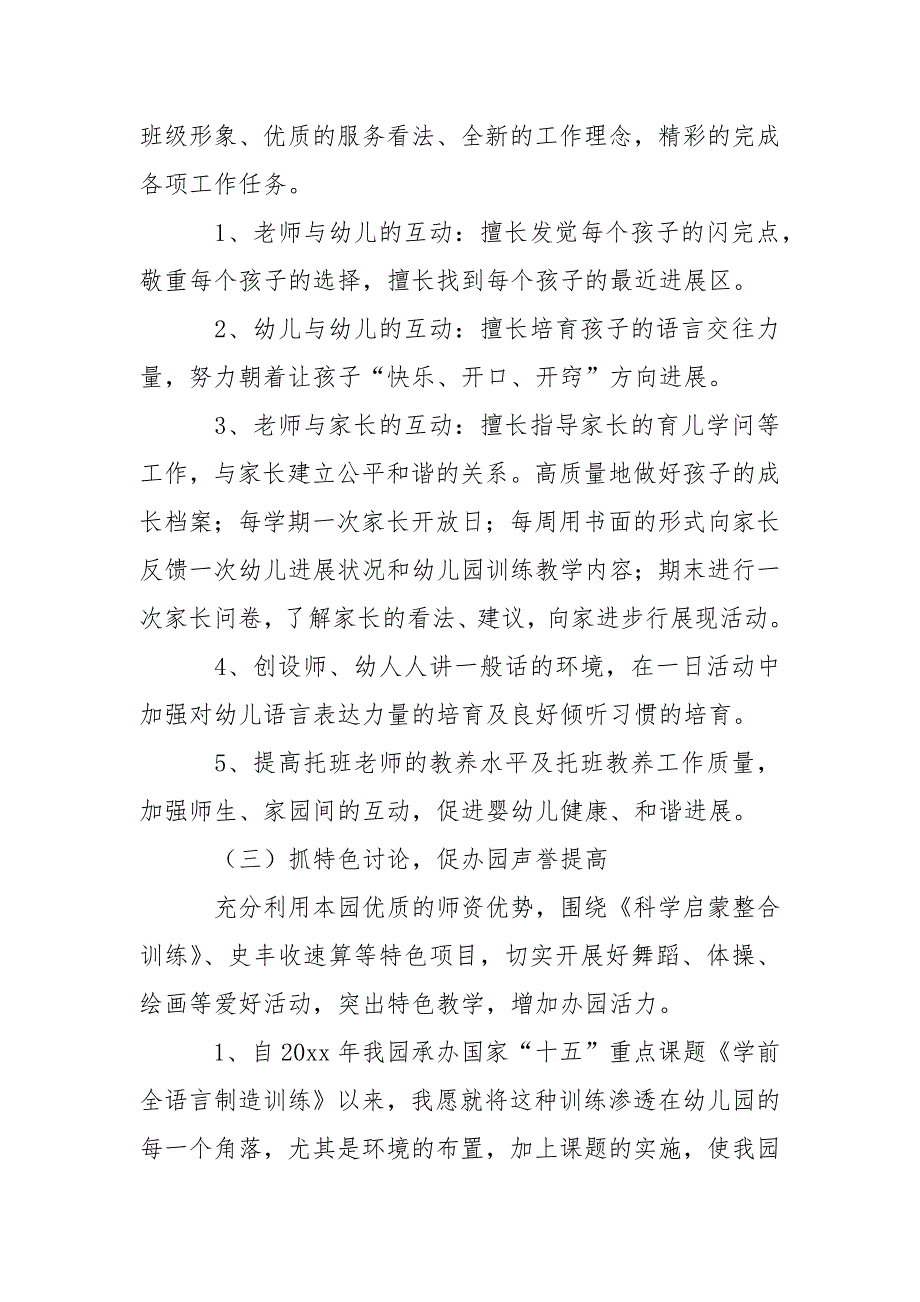 班级形象、优质的服务看法、全新的工作理念，精彩的完成
各项工作任务。
1、老师与幼儿的互动：擅长发觉每个孩子的闪完点，
敬重每个孩子的选择，擅长找到每个孩子的最近进展区。
2、幼儿与幼儿的互动：擅长培育孩子的语言交往力
量，努力朝着让孩子“快乐、开口、开窍”方向进展。
3、老师与家长的互动：擅长指导家长的育儿学问等
工作，与家长建立公平和谐的关系。高质量地做好孩子的成
长档案；每学期一次家长开放日；每周用书面的形式向家长
反馈一次幼儿进展状况和幼儿园训练教学内容；期末进行一
次家长问卷，了解家长的看法、建议，向家进步行展现活动。
4、创设师、幼人人讲一般话的环境，在一日活动中
加强对幼儿语言表达力量的培育及良好倾听习惯的培育。
5、提高托班老师的教养水平及托班教养工作质量，
加强师生、家园间的互动，促进婴幼儿健康、和谐进展。
（三）抓特色讨论，促办园声誉提高
充分利用本园优质的师资优势，围绕《科学启蒙整合
训练》、史丰收速算等特色项目，切实开展好舞蹈、体操、
绘画等爱好活动，突出特色教学，增加办园活力。
1、自 20xx 年我园承办国家“十五”重点课题《学前
全语言制造训练》以来，我愿就将这种训练渗透在幼儿园的
每一个角落，尤其是环境的布置，加上课题的实施，使我园